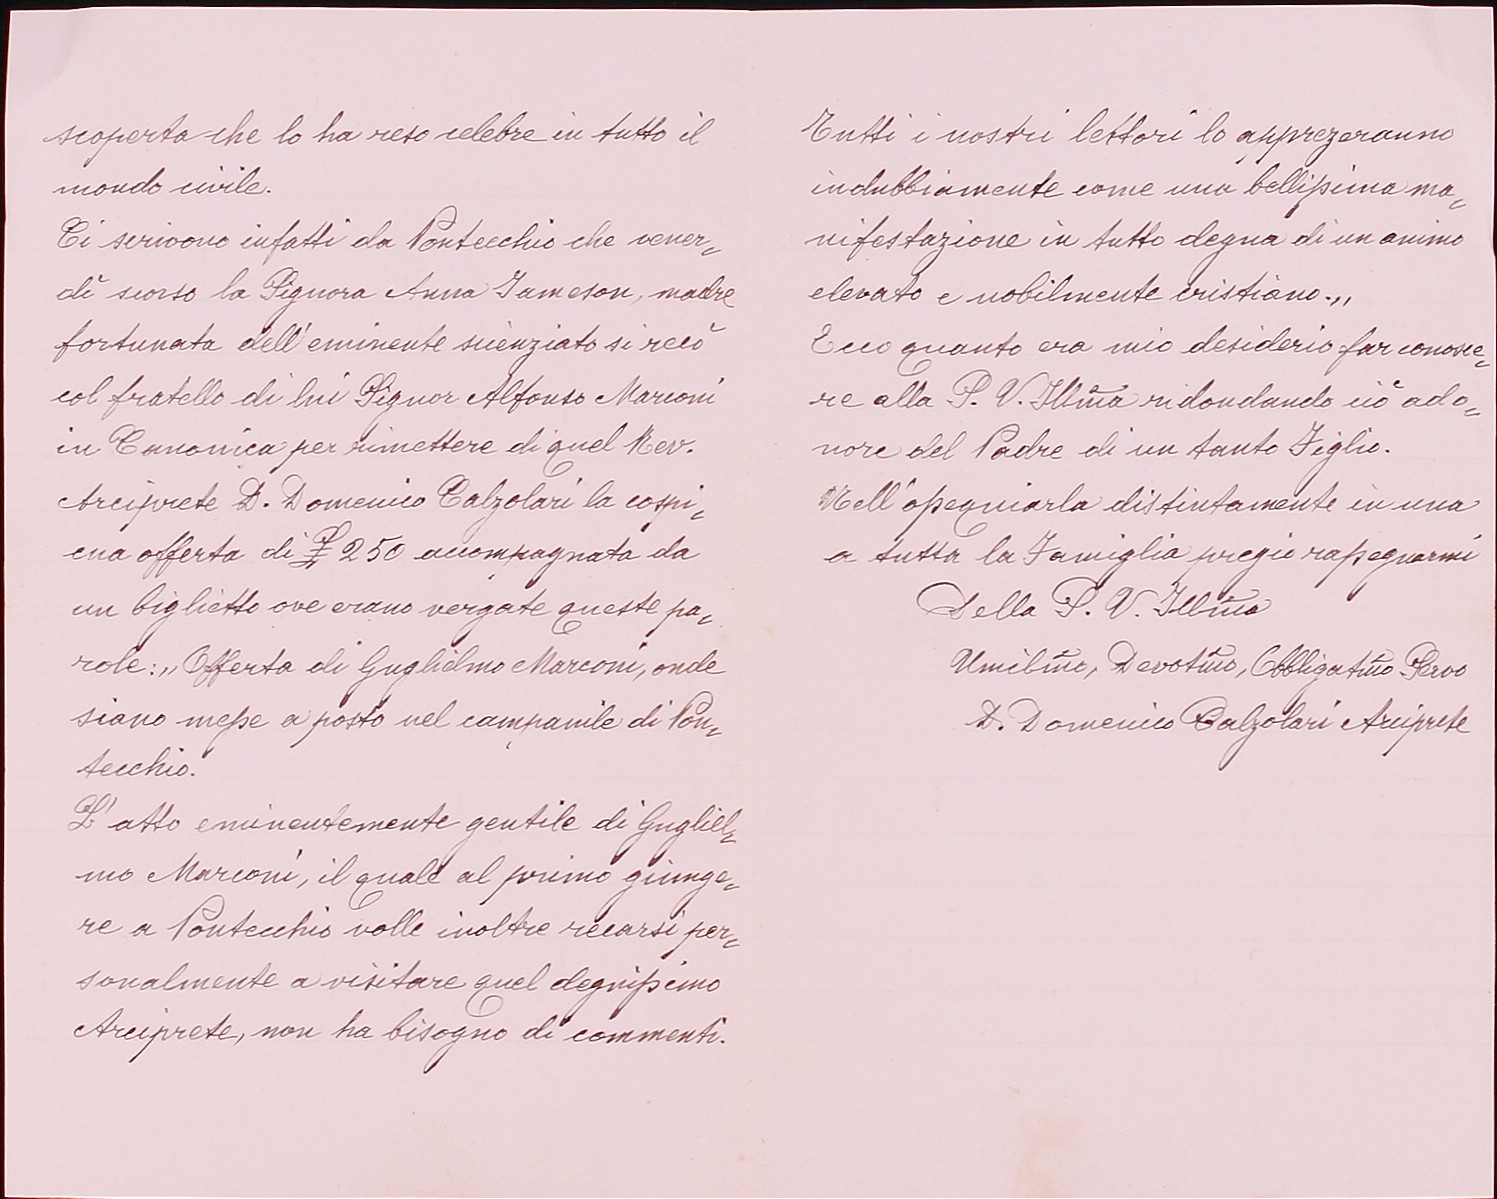 scoperta che lo ha reso celebre in tutto il
mondo civile.
Ci scrivono infatti da Pontecchio che vener=
dì scorso la Signora Anna Jameson, madre
fortunata dell'eminente scienziato si recò
col fratello di lui Signor Alfonso Marconi
in Canonica per rimettere di quel Rev.
Arciprete D. Domenico Calzolari la cospi=
cua offerta di £ 250 accompagnata da
un biglietto ove erano vergate queste pa=
role: „Offerta di Guglielmo Marconi, onde
siano messe a posto nel campanile di Pon=
tecchio.
L'atto eminentemente gentile di Gugliel=
mo Marconi, il quale al primo giunge=
re a Pontecchio volle inoltre recarsi per=
sonalmente a visitare quel degnissimo
Arciprete, non ha bisogno di commenti.
Tutti i nostri lettori lo apprezeranno
indubbiamente come una bellissima ma=
nifestazione in tutto degna di un animo
elevato e nobilmente cristiano.„
Ecco quanto era mio desiderio far conosce=
re alla S. V. Illma ridondando ciò ad o=
nore del Padre di un tanto Figlio.
Nell'ossequiarla distintamente in una
a tutta la Famiglia pregio rassegnarmi
Della S. V. Illma
Umilmo, Devotmo, Obbligatmo Servo
D. Domenico Calzolari Arciprete